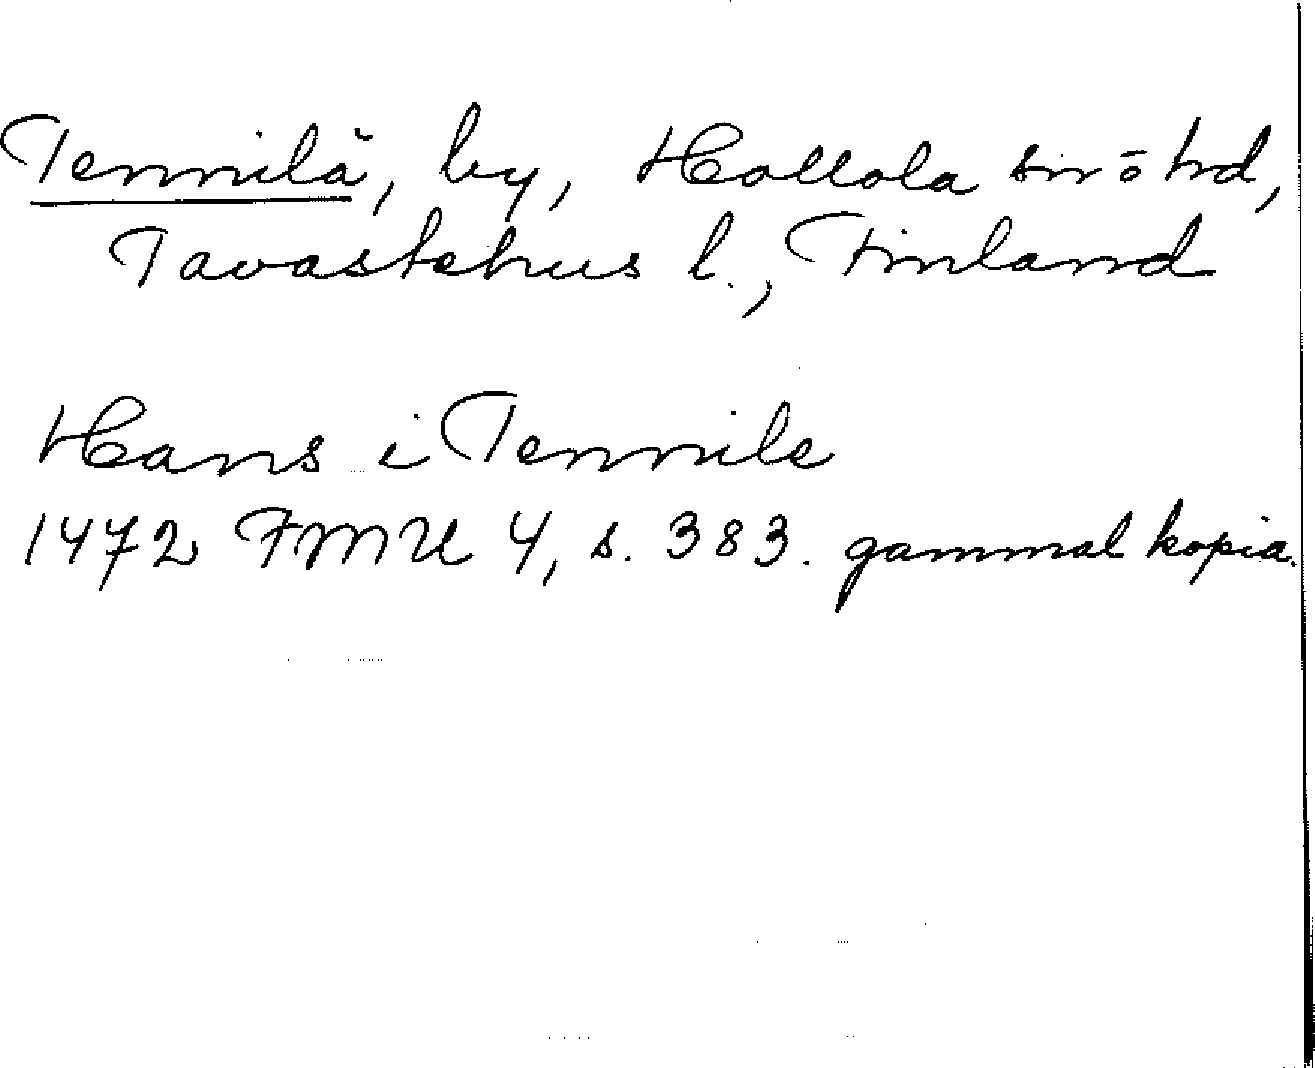 Tennilä, by, Hollola sn ö hd,
Tavastehus l., Finland
Hans i Tennile
1472 FMU 4, s. 383. gammal kopia.